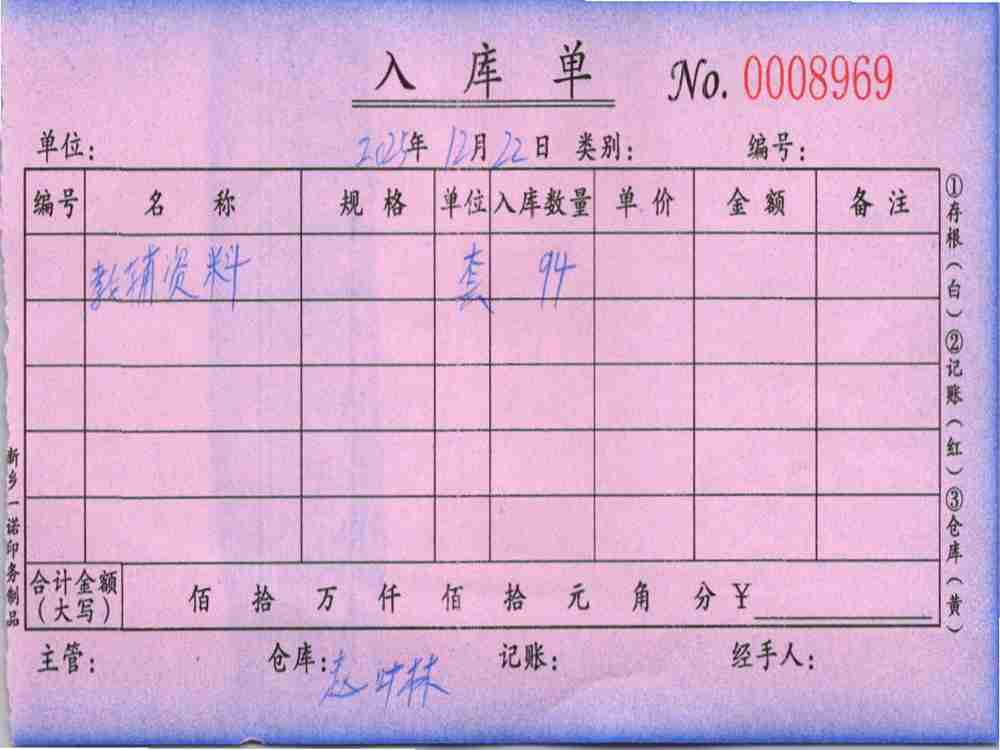 入库单 No. 0008969
单位: 2025年12月22日 类别: 编号:
编号 名称 规格 单位 入库数量 单价 金额 备注
教辅资料 套 94
合计金额(大写) 佰 拾 万 仟 佰 拾 元 角 分 ¥
主管: 仓库: 记账: 经手人:
①存根(白)②记账(红)③仓库(黄)
新乡一诺印务制品